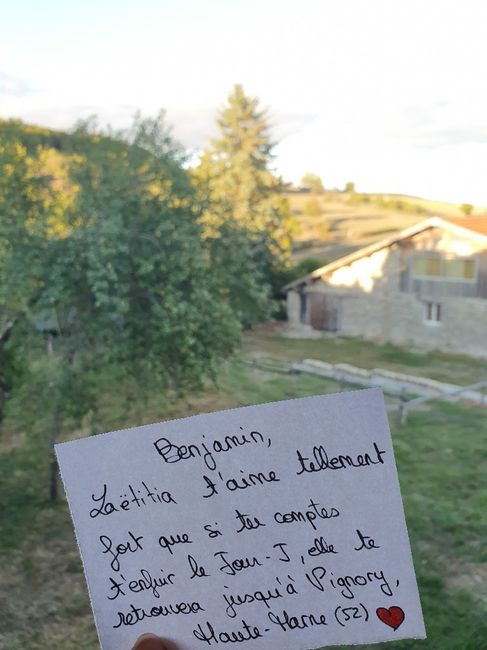 Benjamin,
Laëtitia t'aime tellement
fort que si tu comptes
t'enfuir le Jour-J, elle te
retrouvera jusqu'à Vignory,
Haute-Marne (52)